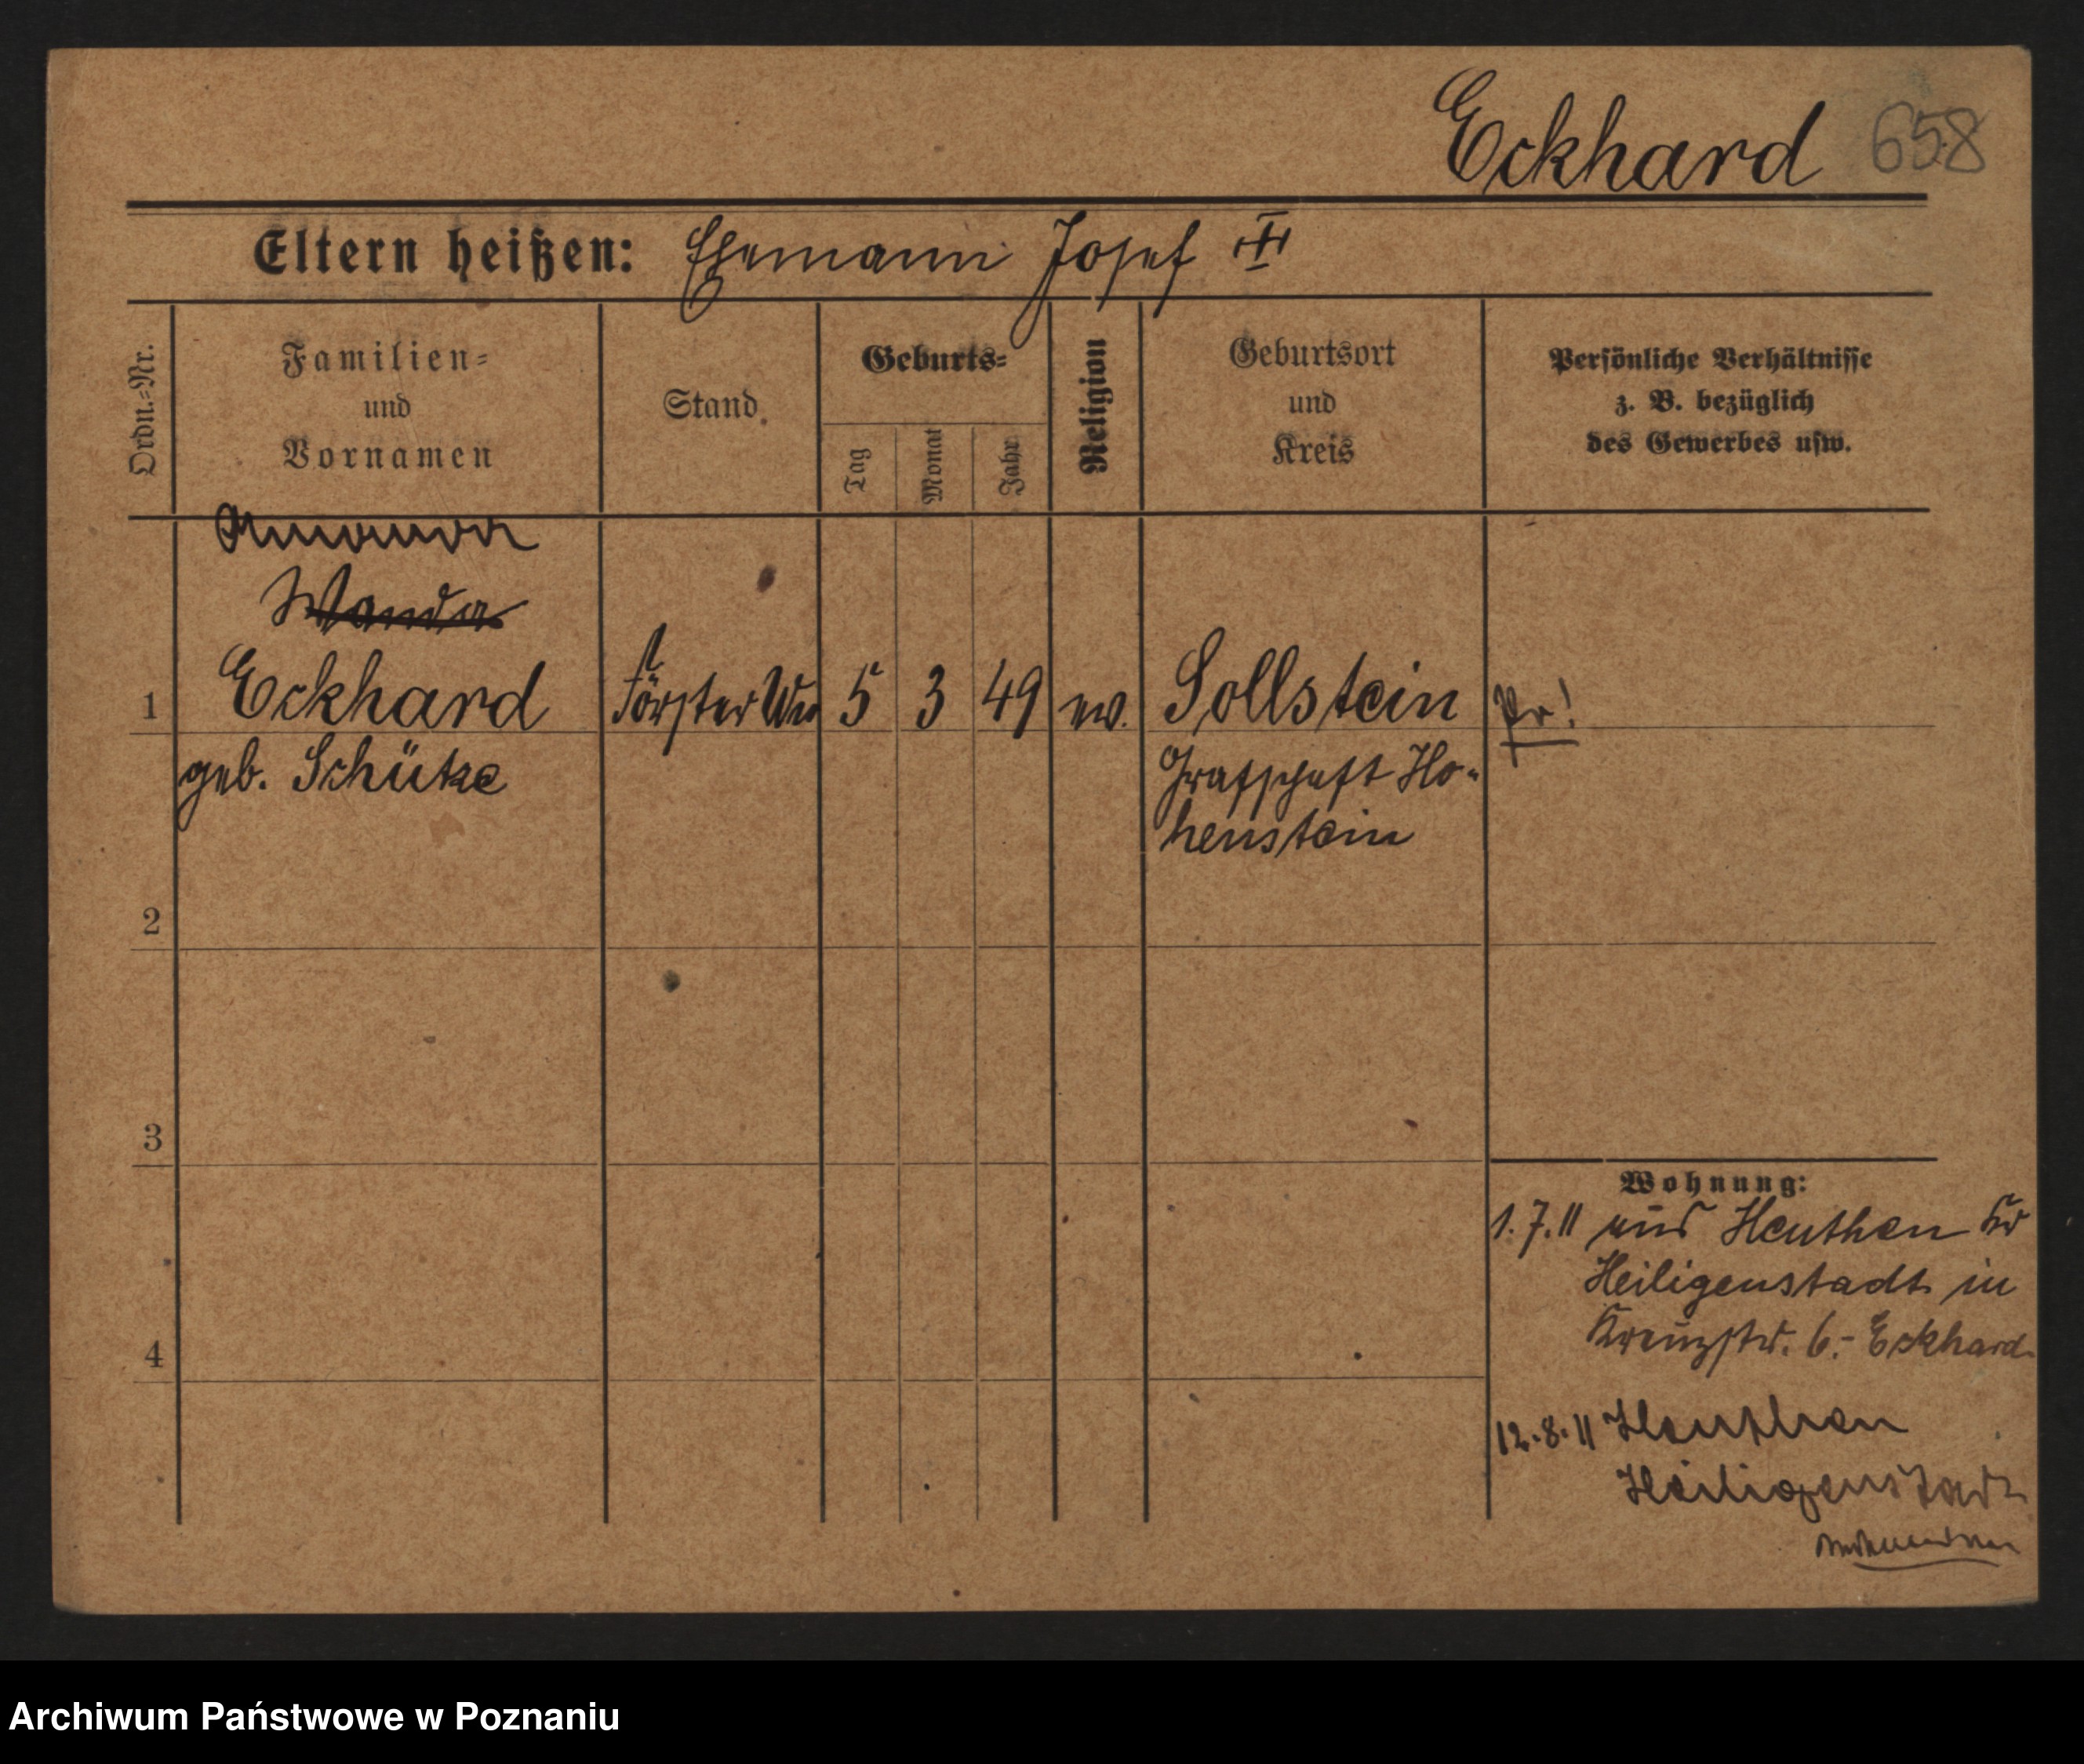 Eckhard 658
Eltern heißen: Ehemann Josef III
Ordn.=Nr.
Familien=
und
Vornamen
Stand.
Geburts=
Tag
Monat
Jahr
Religion
Geburtsort
und
Kreis
Persönliche Verhältnisse
z. B. bezüglich
des Gewerbes usw.
Wanda
1 Eckhard Förster Ww 5 3 49 ev. Sollstein Pr!
geb. Schütze Grafschaft Ho-
henstein
2
3
4
Wohnung:
1.7.11 aus Heuthen Kr
Heiligenstadt in
Kreuzstr. 6.- Eckhard
12.8.11 Heuthen
Heiligenstadt
Archiwum Państwowe w Poznaniu